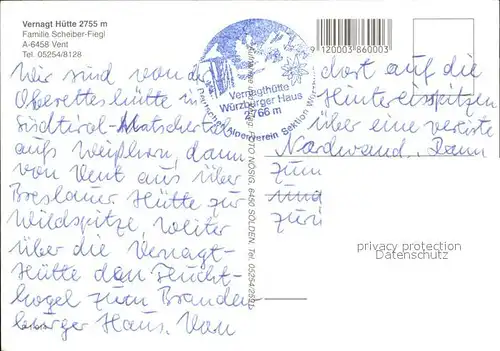 Vernagt Hütte 2755 m
Familie Scheiber-Fiegl
A-6458 Vent
Tel. 05254/8128
9120003860003
Vernagthütte
Würzburger Haus
2766 m
Deutscher Alpenverein Sektion
Wir sind von der
Oberetteshütte in
Südtirol-Matschertal
aufs Weißkugel, dann
von Vent aus über
Breslauer Hütte zur
Wildspitze, weiter
über die Vernagt-
Hütte den Flucht-
kogel zum Branden-
burger Haus. Von
dort auf die
Hintereisspitzen
über eine vereiste
Nordwand. Dann
zum
und
6450 SÖLDEN Tel. 05254/2921
privacy protection
Datenschutz